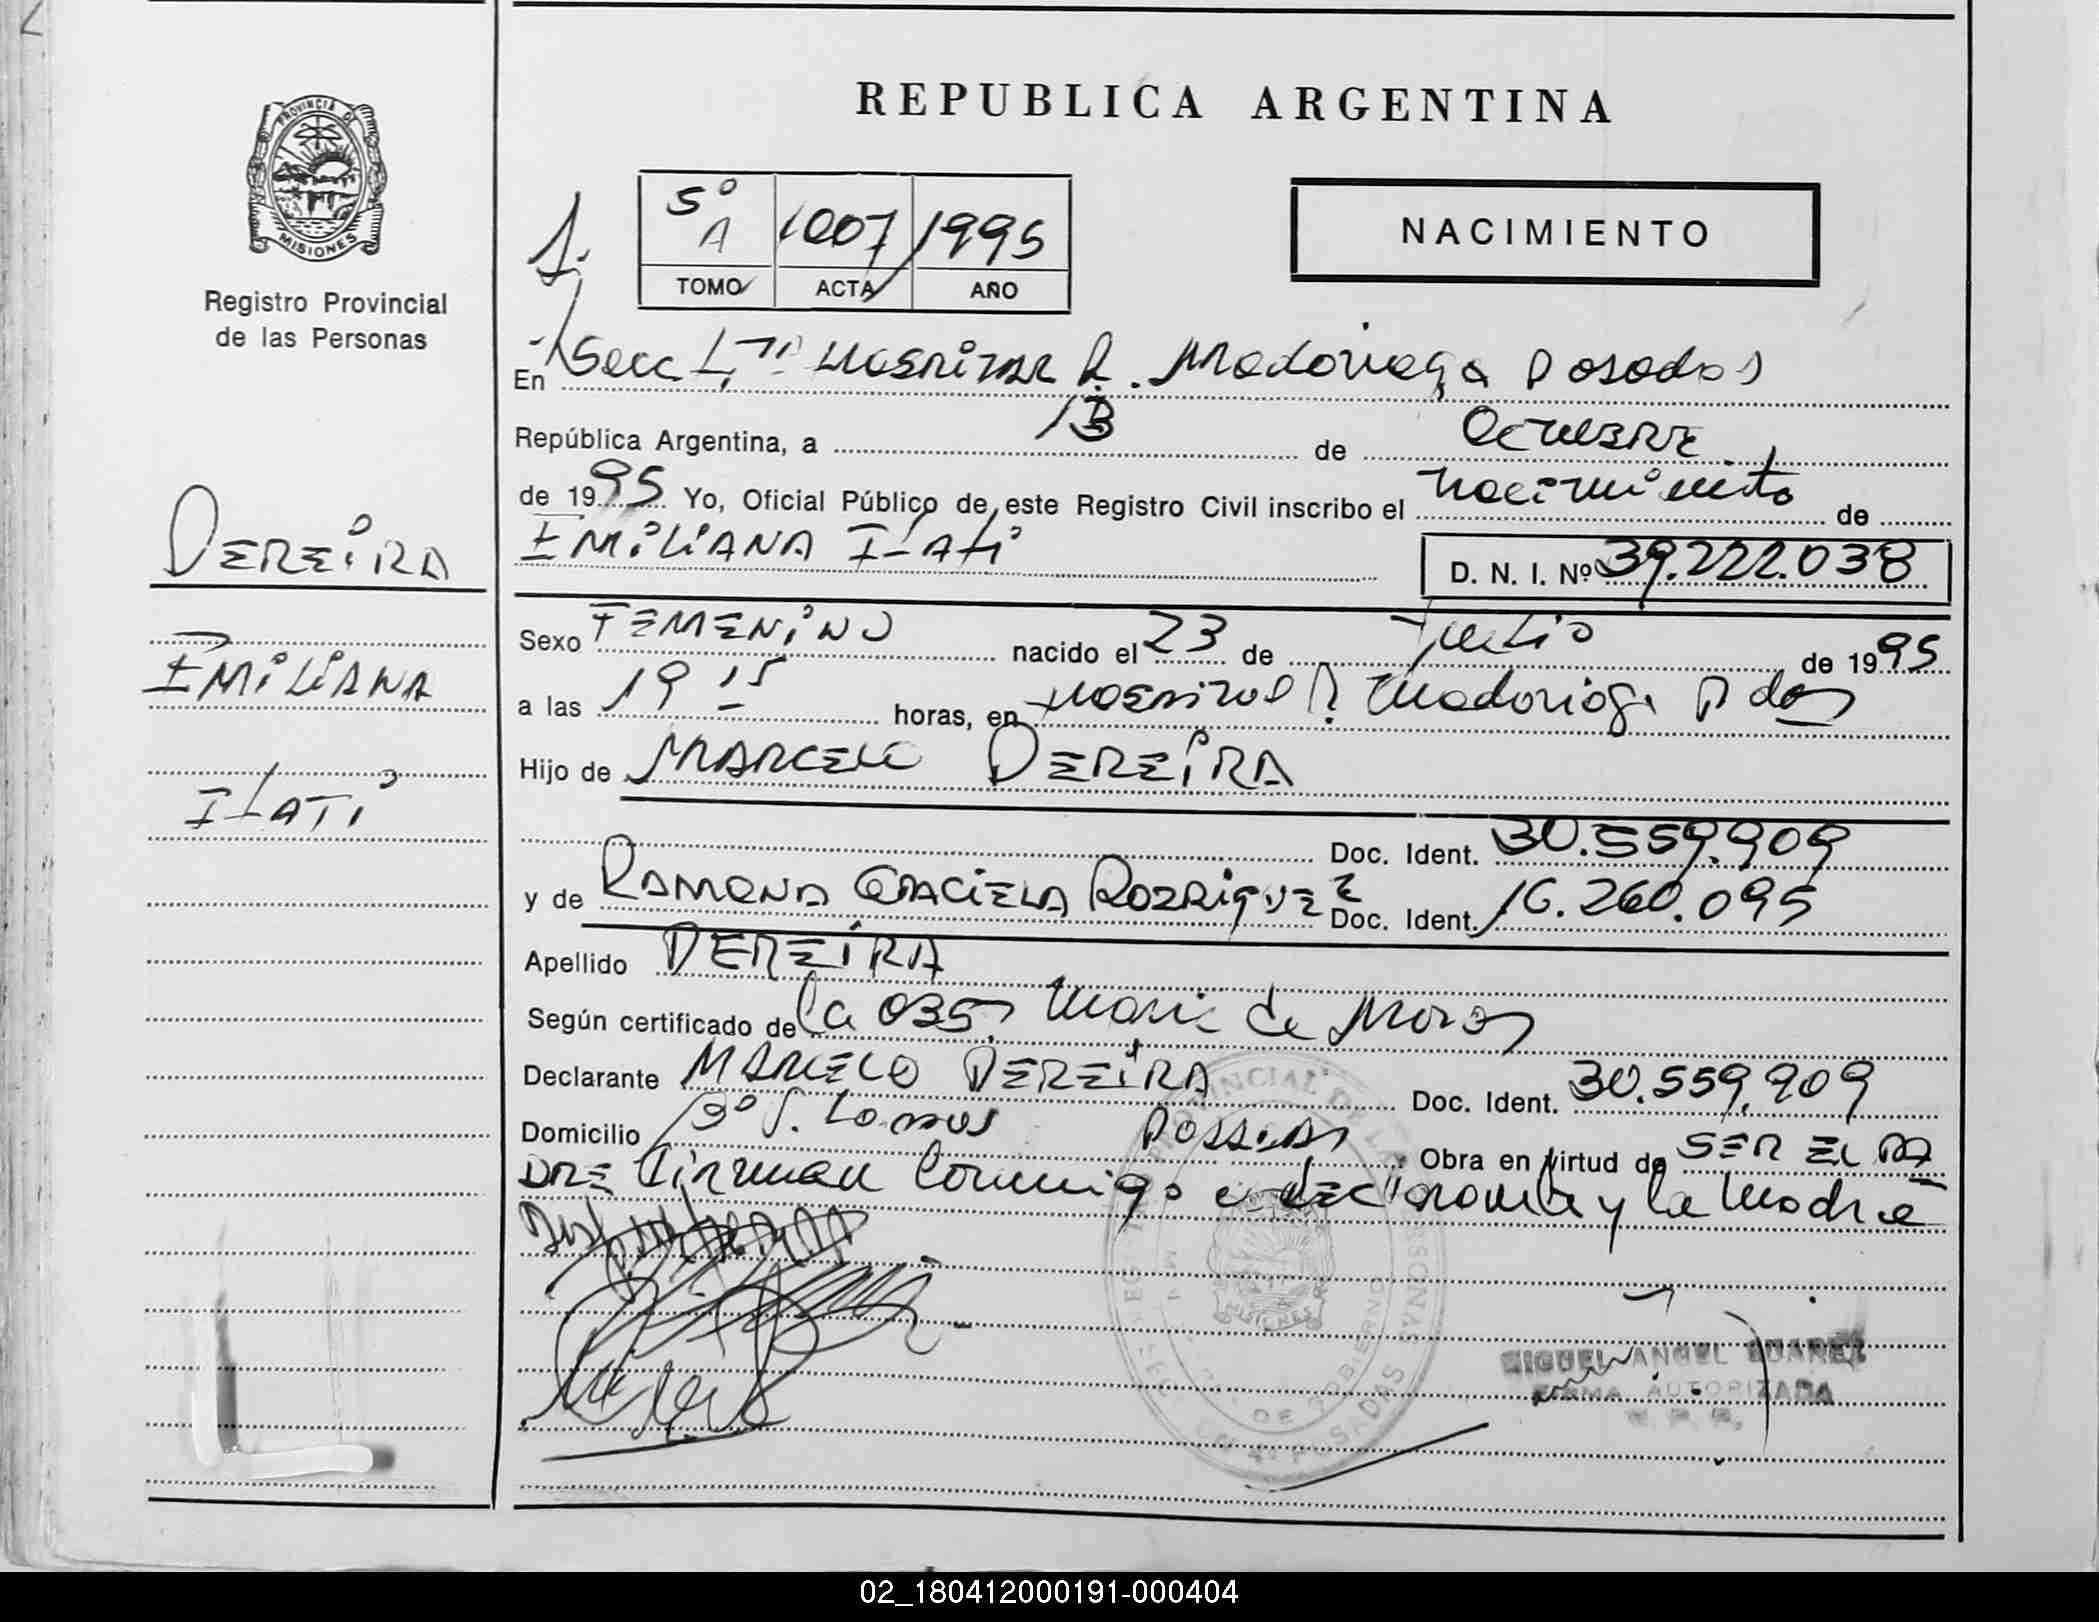 REPUBLICA ARGENTINA
PROVINCIA DE
MISIONES
Registro Provincial
de las Personas
5º A 1007 1995
TOMO ACTA AÑO
NACIMIENTO
En Secc Hospital R. Madariaga Posadas
República Argentina, a 13 de Octubre
de 1995 Yo, Oficial Público de este Registro Civil inscribo el nacimiento de
EMILIANA ITATÍ
D. N. I. Nº 39.222.038
PEREIRA
EMILIANA
ITATÍ
Sexo FEMENINO nacido el 23 de Julio de 1995
a las 19 15 horas, en Hospital R. Madariaga Pdas
Hijo de MARCELO PEREIRA
Doc. Ident. 30.559.909
y de RAMONA GRACIELA RODRIGUEZ Doc. Ident. 16.260.095
Apellido PEREIRA
Según certificado de la Obst. Maria de Moros
Declarante MARCELO PEREIRA Doc. Ident. 30.559.909
Domicilio Posadas Obra en virtud de SER EL PA
DRE Firman conmigo el declarante y la madre
MIGUEL ANGEL SUAREZ
FIRMA AUTORIZADA
R. P. P.
02_180412000191-000404